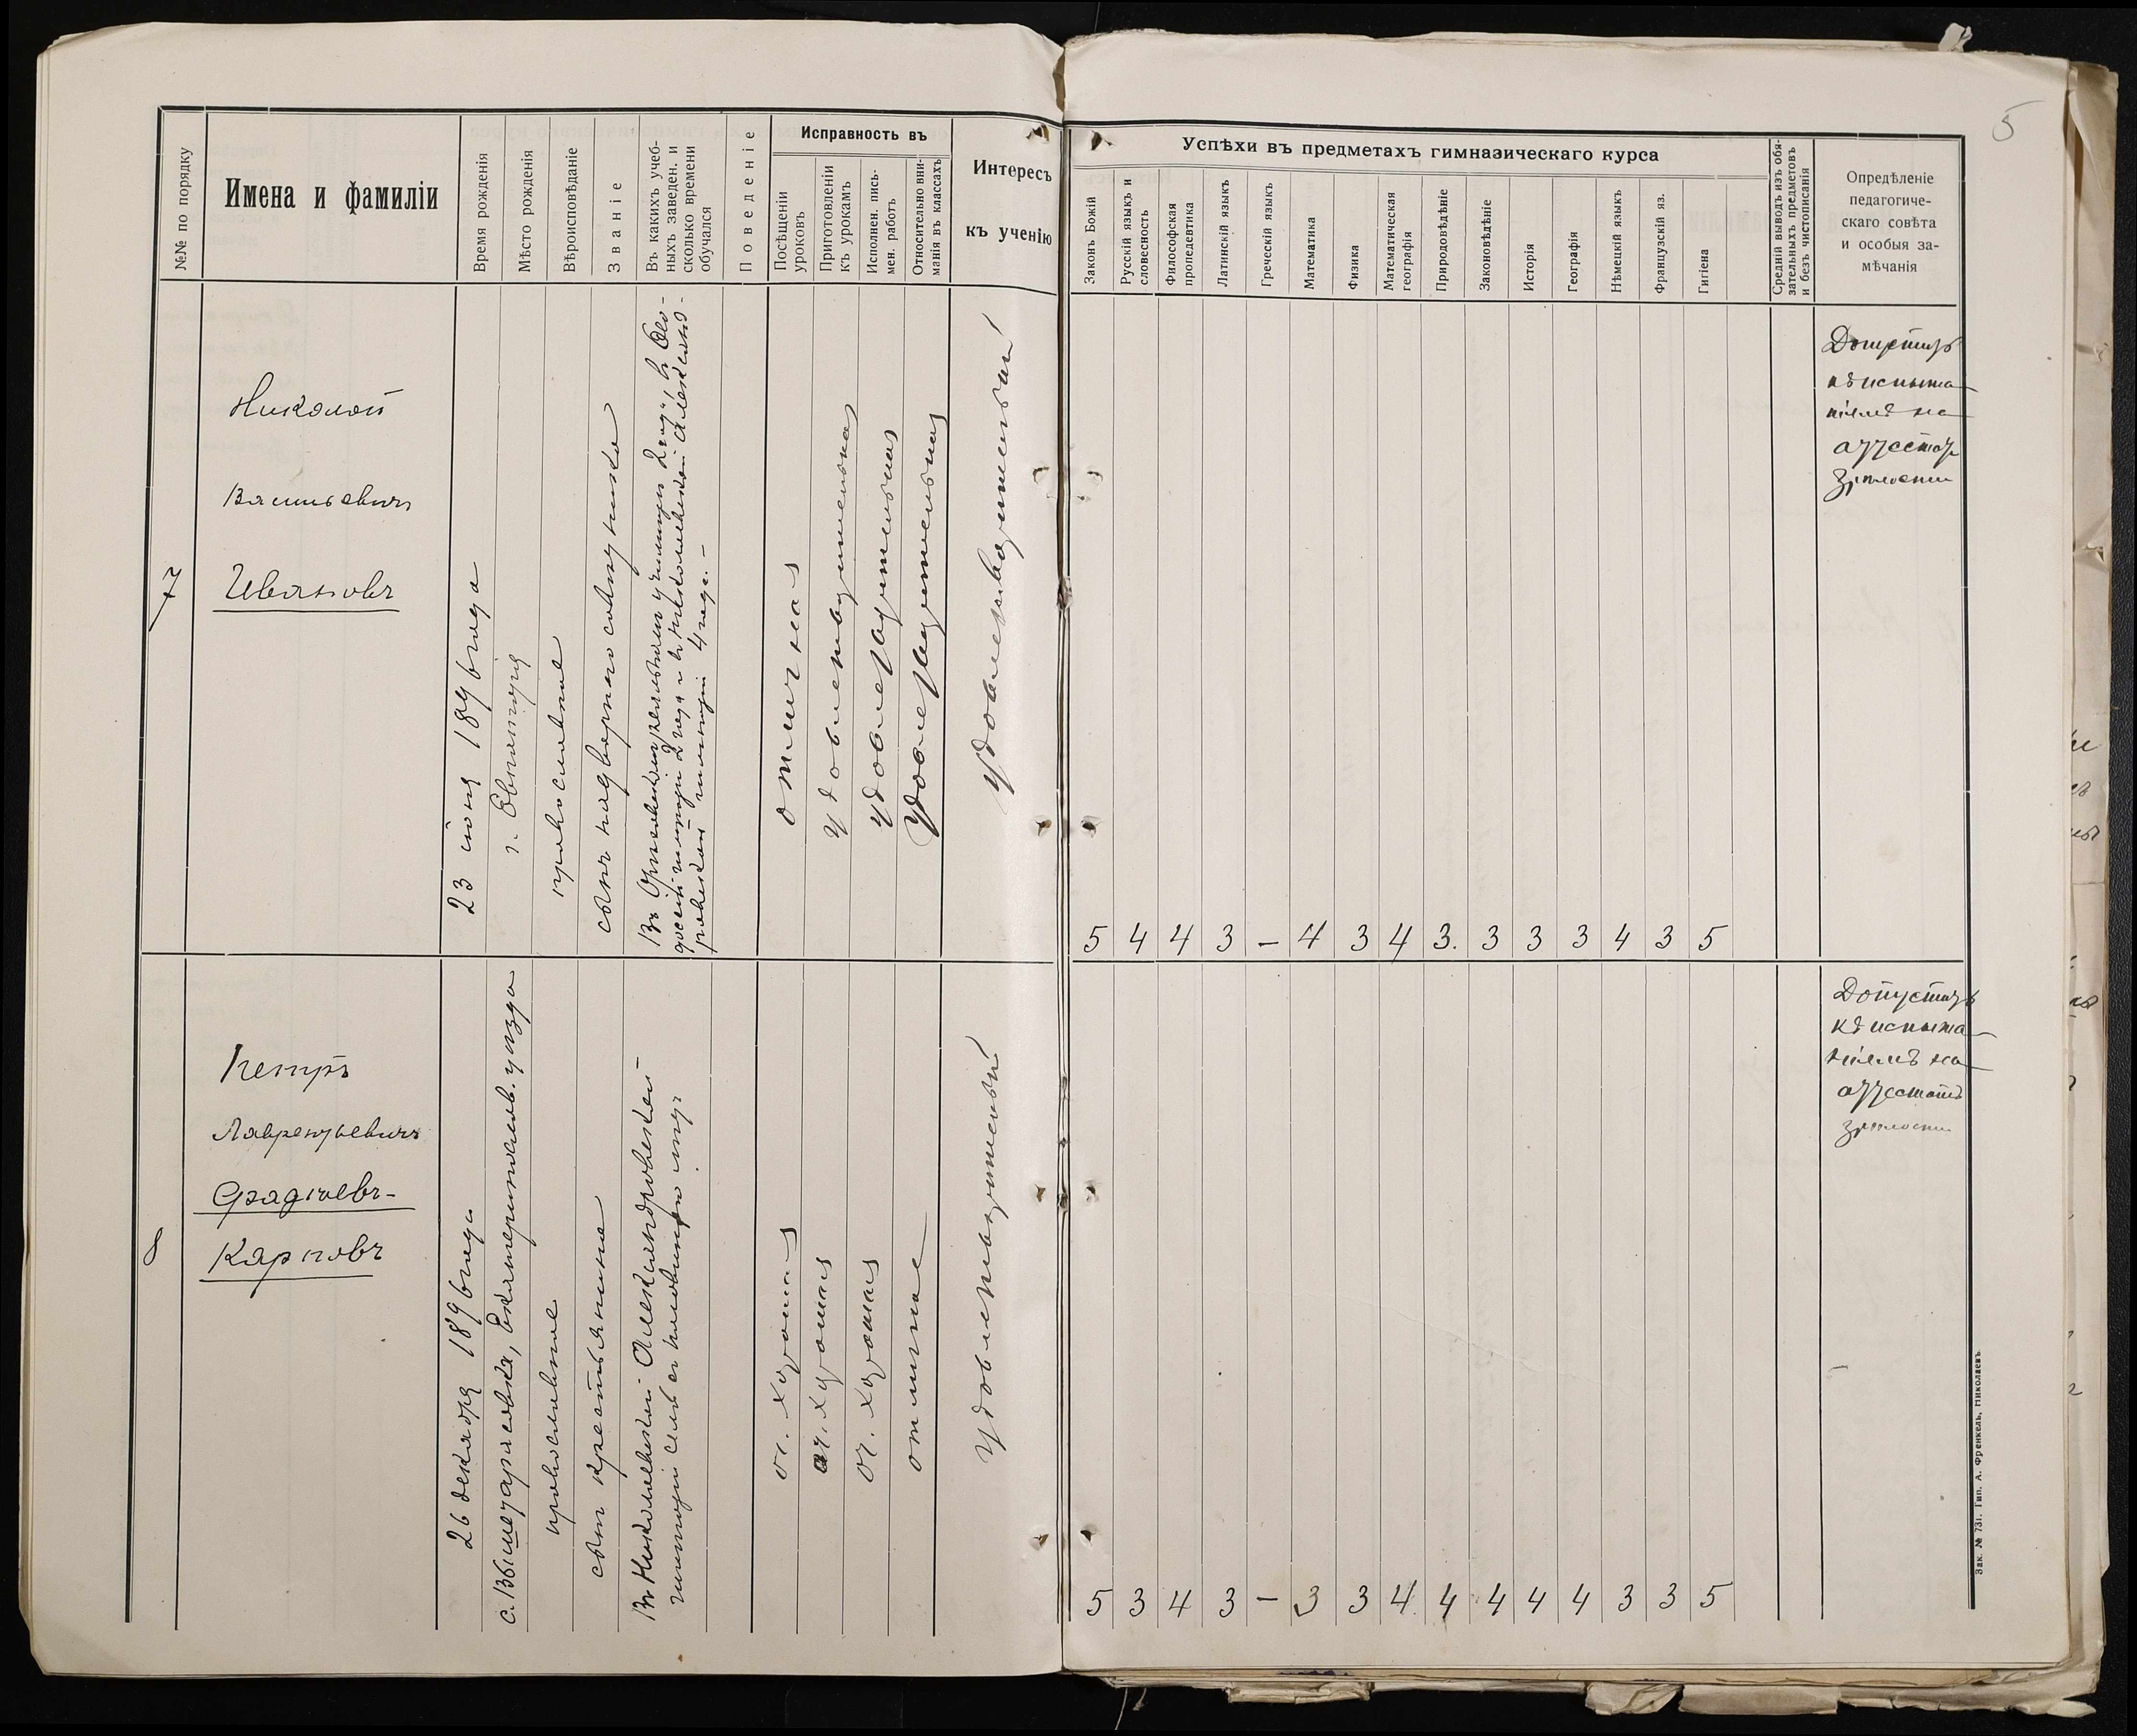 5
№№ по порядку
Имена и фамиліи
Время рожденія
Мѣсто рожденія
Вѣроисповѣданіе
Званіе
Въ какихъ учеб-
ныхъ заведен. и
сколько времени
обучался
Поведеніе
Исправность въ
Посѣщеніи
уроковъ
Приготовленіи
къ урокамъ
Исполнен. пись-
мен. работъ
Относительно вни-
манія въ классахъ
Интересъ
къ ученію
Успѣхи въ предметахъ гимназическаго курса
Законъ Божій
Русскій языкъ и
словесность
Философская
пропедевтика
Латинскій языкъ
Греческій языкъ
Математика
Физика
Математическая
географія
Природовѣдѣніе
Законовѣдѣніе
Исторія
Географія
Нѣмецкій языкъ
Французскій яз.
Гигіена
Средній выводъ изъ обя-
зательныхъ предметовъ
и безъ чистописанія
Опредѣленіе
педагогиче-
скаго совѣта
и особыя за-
мѣчанія
7
Николай
Васильевичъ
Ивановъ
23 іюня 1896 года
г. Евпаторія
православное
сынъ надворного совѣтника
реальномъ училищѣ 2 года, въ
гимназіи 2 года и въ Николаевской Александ-
ровской гимназіи 4 года. –
отличная
удовлетворительная
удовлетворительная
удовлетворительная
удовлетворительный
5 4 4 3 – 4 3 4 3. 3 3 3 4 3 5
Допустить
къ испыта-
ніямъ на
аттестатъ
зрѣлости
8
Петръ
Лаврентьевичъ
Фадѣевъ-
Карповъ
26 декабря 1896 года
с. Вышетарасовка, Екатеринослав. уѣзда
православное
сынъ крестьянина
Въ Николаевской Александровской
гимназіи семь съ половиною лѣтъ
оч. хорошая
оч. хорошая
оч. хорошая
отличное
удовлетворительный
5 3 4 3 – 3 3 4 4 4 4 4 3 3 5
Допустить
къ испыта-
ніямъ на
аттестатъ
зрѣлости
Зак. № 731. Тип. А. Френкель, Николаевъ